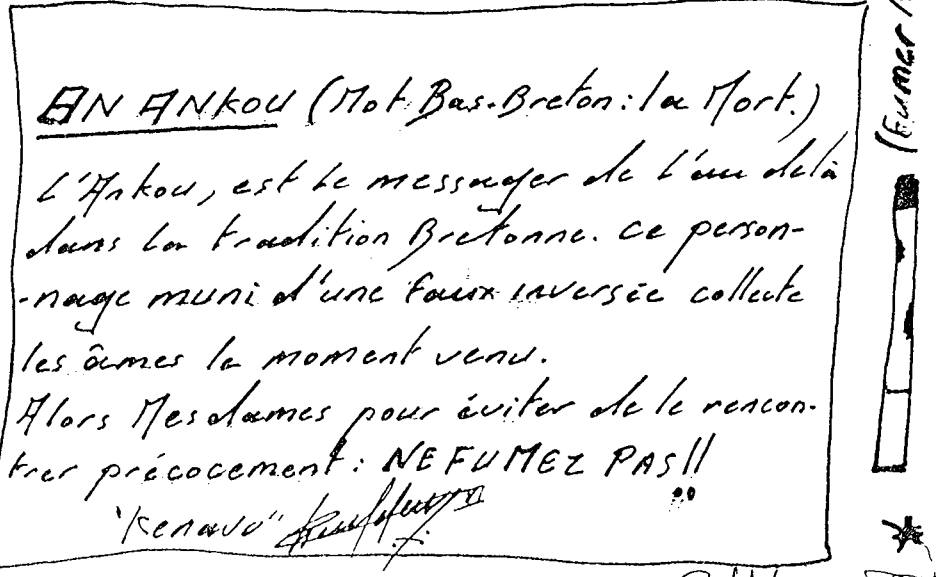 AN ANKOU (Mot Bas-Breton : la Mort.)
L'Ankou, est le messager de l'au delà
dans la tradition Bretonne. ce person-
-nage muni d'une faux inversée collecte
les âmes le moment venu.
Alors Mesdames pour éviter de le rencon-
trer précocement : NE FUMEZ PAS!!
"Kenavo"
(Fumer